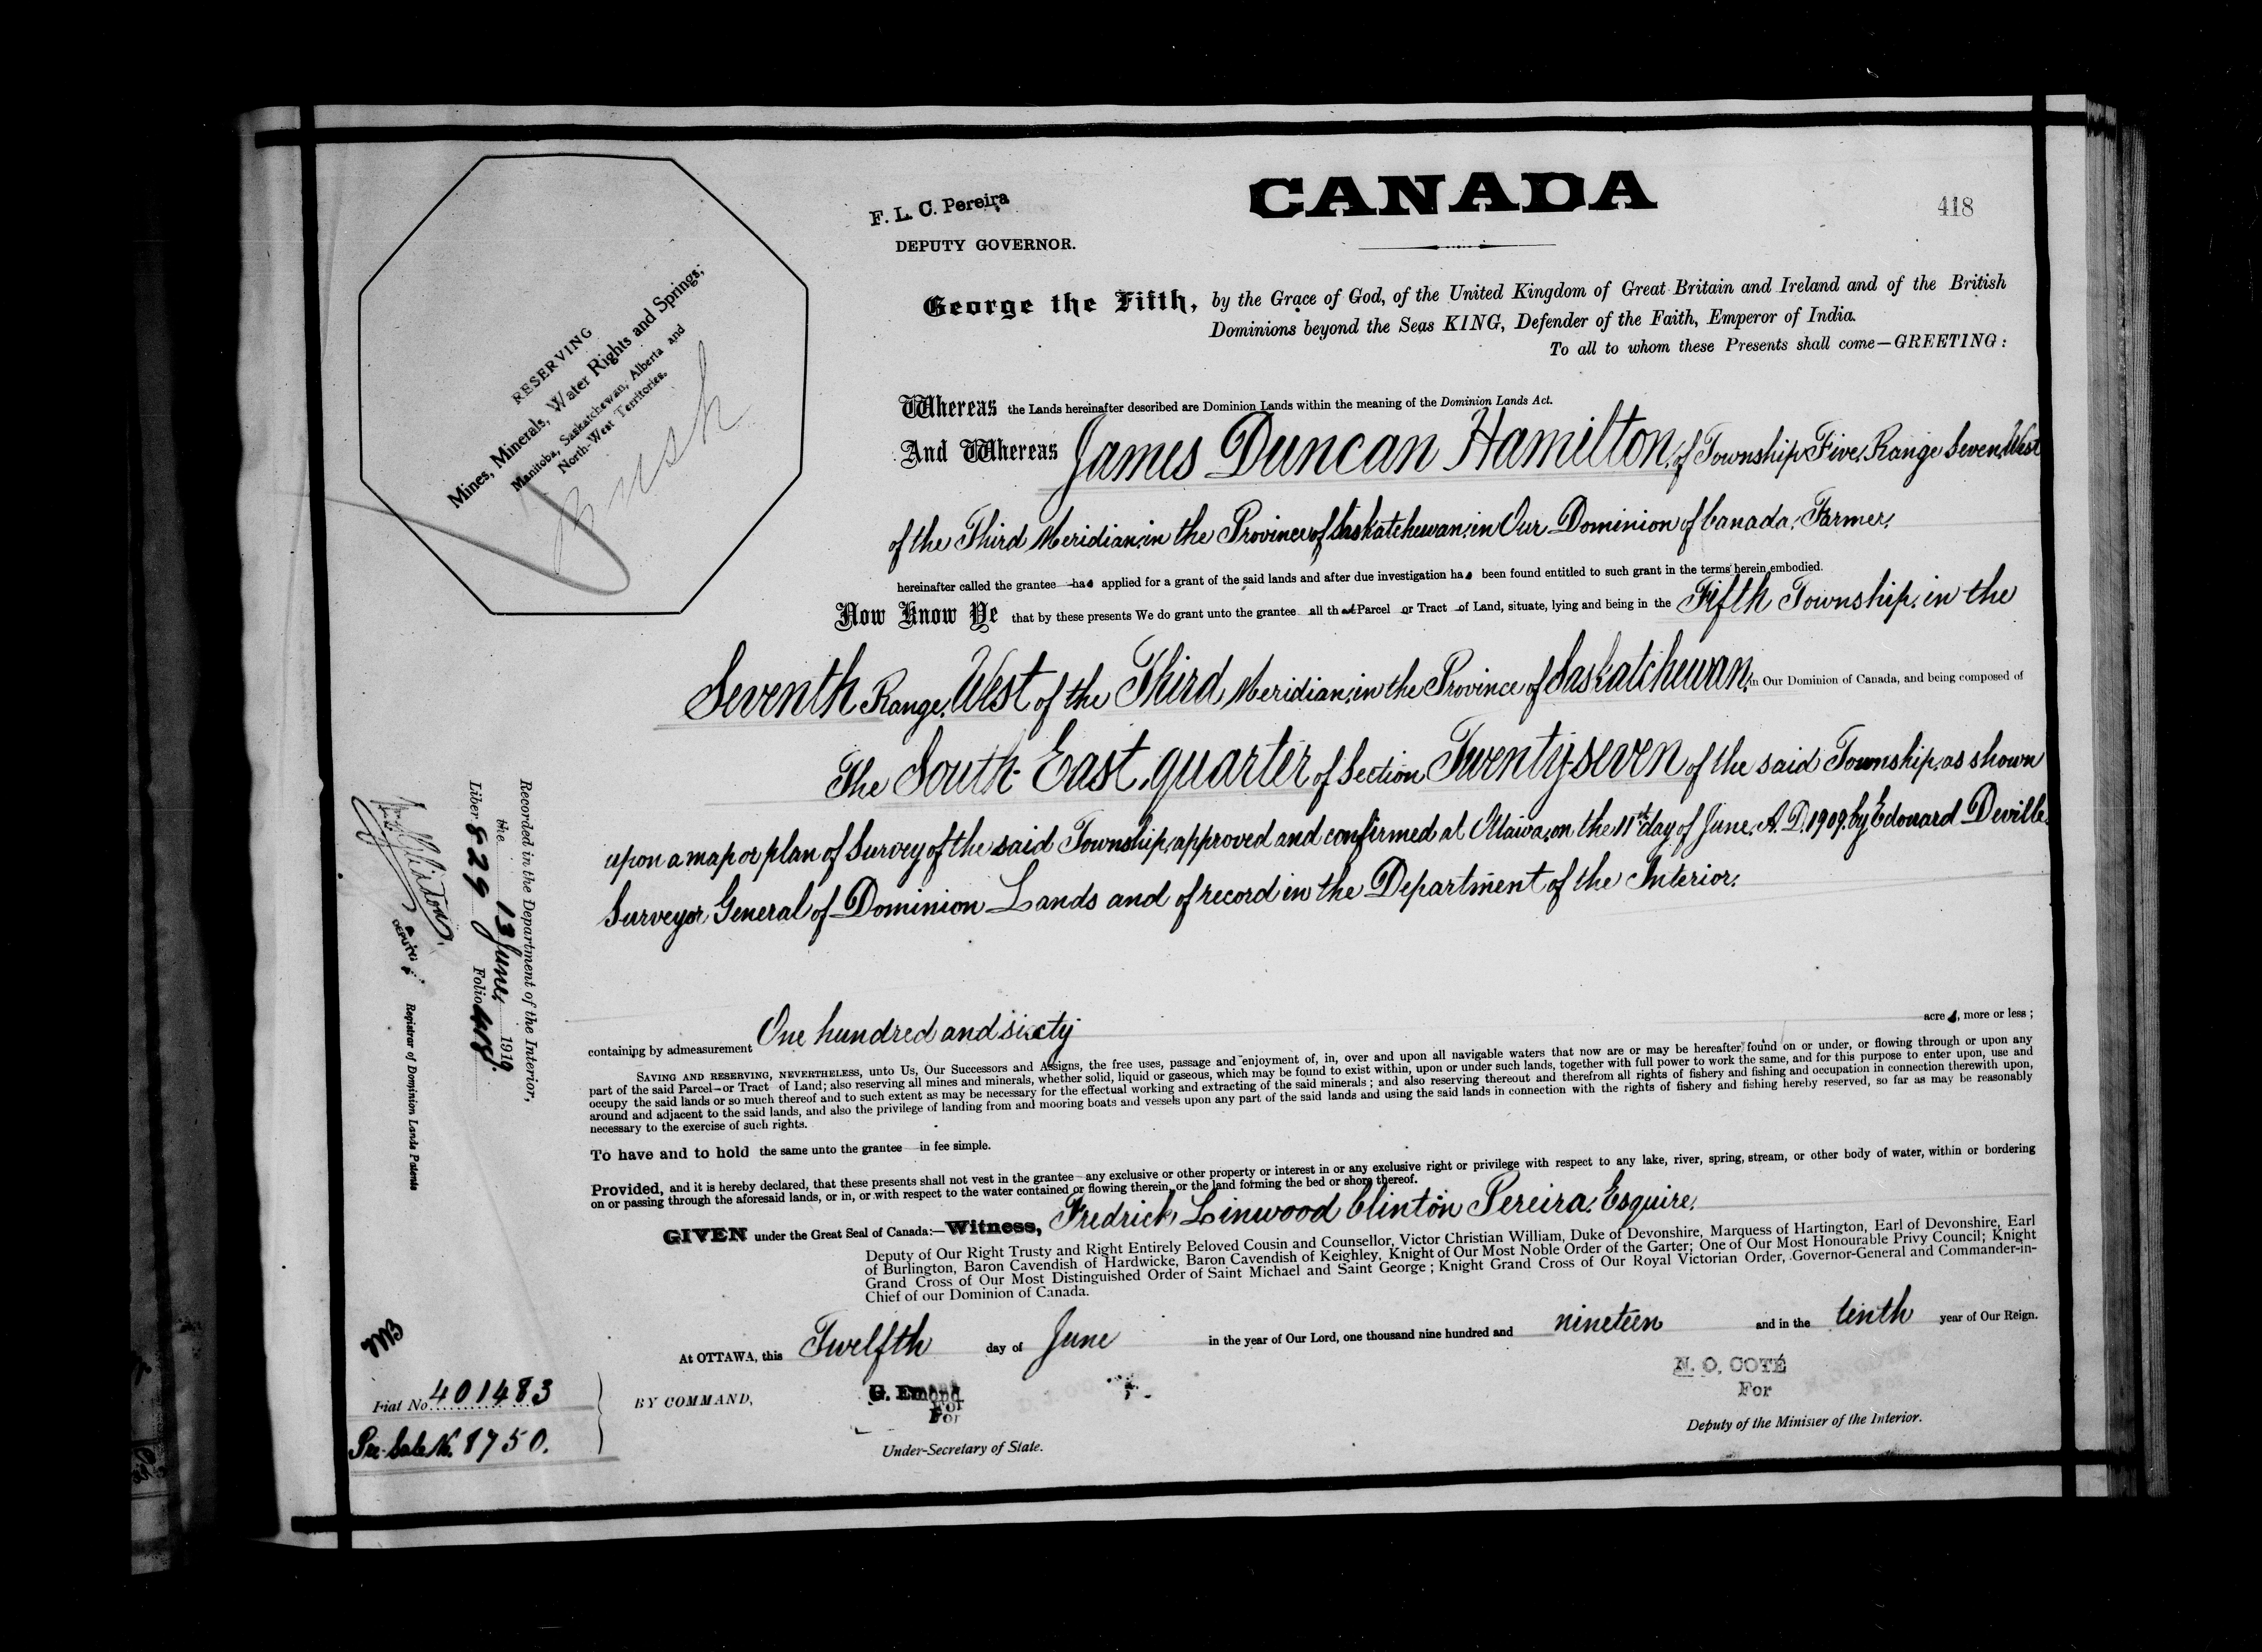 F. L. C. Pereira
DEPUTY GOVERNOR.
CANADA
418
George the Fifth, by the Grace of God, of the United Kingdom of Great Britain and Ireland and of the British
Dominions beyond the Seas KING, Defender of the Faith, Emperor of India.
To all to whom these Presents shall come—GREETING:
RESERVING
Mines, Minerals, Water Rights and Springs;
Manitoba, Saskatchewan, Alberta and
North-West Territories.
Bush
Whereas the Lands hereinafter described are Dominion Lands within the meaning of the Dominion Lands Act.
And Whereas James Duncan Hamilton, of Township Five, Range Seven, West
of the Third Meridian, in the Province of Saskatchewan, in Our Dominion of Canada, Farmer,
hereinafter called the grantee has applied for a grant of the said lands and after due investigation has been found entitled to such grant in the terms herein embodied.
Now Know Ye that by these presents We do grant unto the grantee all that Parcel or Tract of Land, situate, lying and being in the Fifth Township, in the
Seventh Range, West of the Third Meridian, in the Province of Saskatchewan, in Our Dominion of Canada, and being composed of
The South-East quarter of Section Twenty-seven of the said Township, as shown
upon a map or plan of Survey of the said Township, approved and confirmed at Ottawa, on the 11th day of June, A.D. 1909, by Edouard Deville
Surveyor General of Dominion Lands and of record in the Department of the Interior.
containing by admeasurement One hundred and sixty acres, more or less;
SAVING AND RESERVING, NEVERTHELESS, unto Us, Our Successors and Assigns, the free uses, passage and enjoyment of, in, over and upon all navigable waters that now are or may be hereafter found on or under, or flowing through or upon any
part of the said Parcel or Tract of Land; also reserving all mines and minerals, whether solid, liquid or gaseous, which may be found to exist within, upon or under such lands, together with full power to work the same, and for this purpose to enter upon, use and
occupy the said lands or so much thereof and to such extent as may be necessary for the effectual working and extracting of the said minerals; and also reserving thereout and therefrom all rights of fishery and fishing and occupation in connection therewith upon,
around and adjacent to the said lands, and also the privilege of landing from and mooring boats and vessels upon any part of the said lands and using the said lands in connection with the rights of fishery and fishing hereby reserved, so far as may be reasonably
necessary to the exercise of such rights.
To have and to hold the same unto the grantee in fee simple.
Provided, and it is hereby declared, that these presents shall not vest in the grantee any exclusive or other property or interest in or any exclusive right or privilege with respect to any lake, river, spring, stream, or other body of water, within or bordering
on or passing through the aforesaid lands, or in, or with respect to the water contained or flowing therein, or the land forming the bed or shore thereof.
GIVEN under the Great Seal of Canada:—Witness, Fredrick Linwood Clinton Pereira, Esquire,
Deputy of Our Right Trusty and Right Entirely Beloved Cousin and Counsellor, Victor Christian William, Duke of Devonshire, Marquess of Hartington, Earl of Devonshire, Earl
of Burlington, Baron Cavendish of Hardwicke, Baron Cavendish of Keighley, Knight of Our Most Noble Order of the Garter; One of Our Most Honourable Privy Council; Knight
Grand Cross of Our Most Distinguished Order of Saint Michael and Saint George; Knight Grand Cross of Our Royal Victorian Order, Governor-General and Commander-in-
Chief of our Dominion of Canada.
At OTTAWA, this Twelfth day of June in the year of Our Lord, one thousand nine hundred and nineteen and in the tenth year of Our Reign.
BY COMMAND,
G. Emond
For
Under-Secretary of State.
N. O. COTÉ
For
Deputy of the Minister of the Interior.
Recorded in the Department of the Interior,
the 13 June, 1919
Liber 829 Folio 418.
DEPUTY
Registrar of Dominion Lands Patents
Fiat No 401483
Pre-Sale No. 8750.